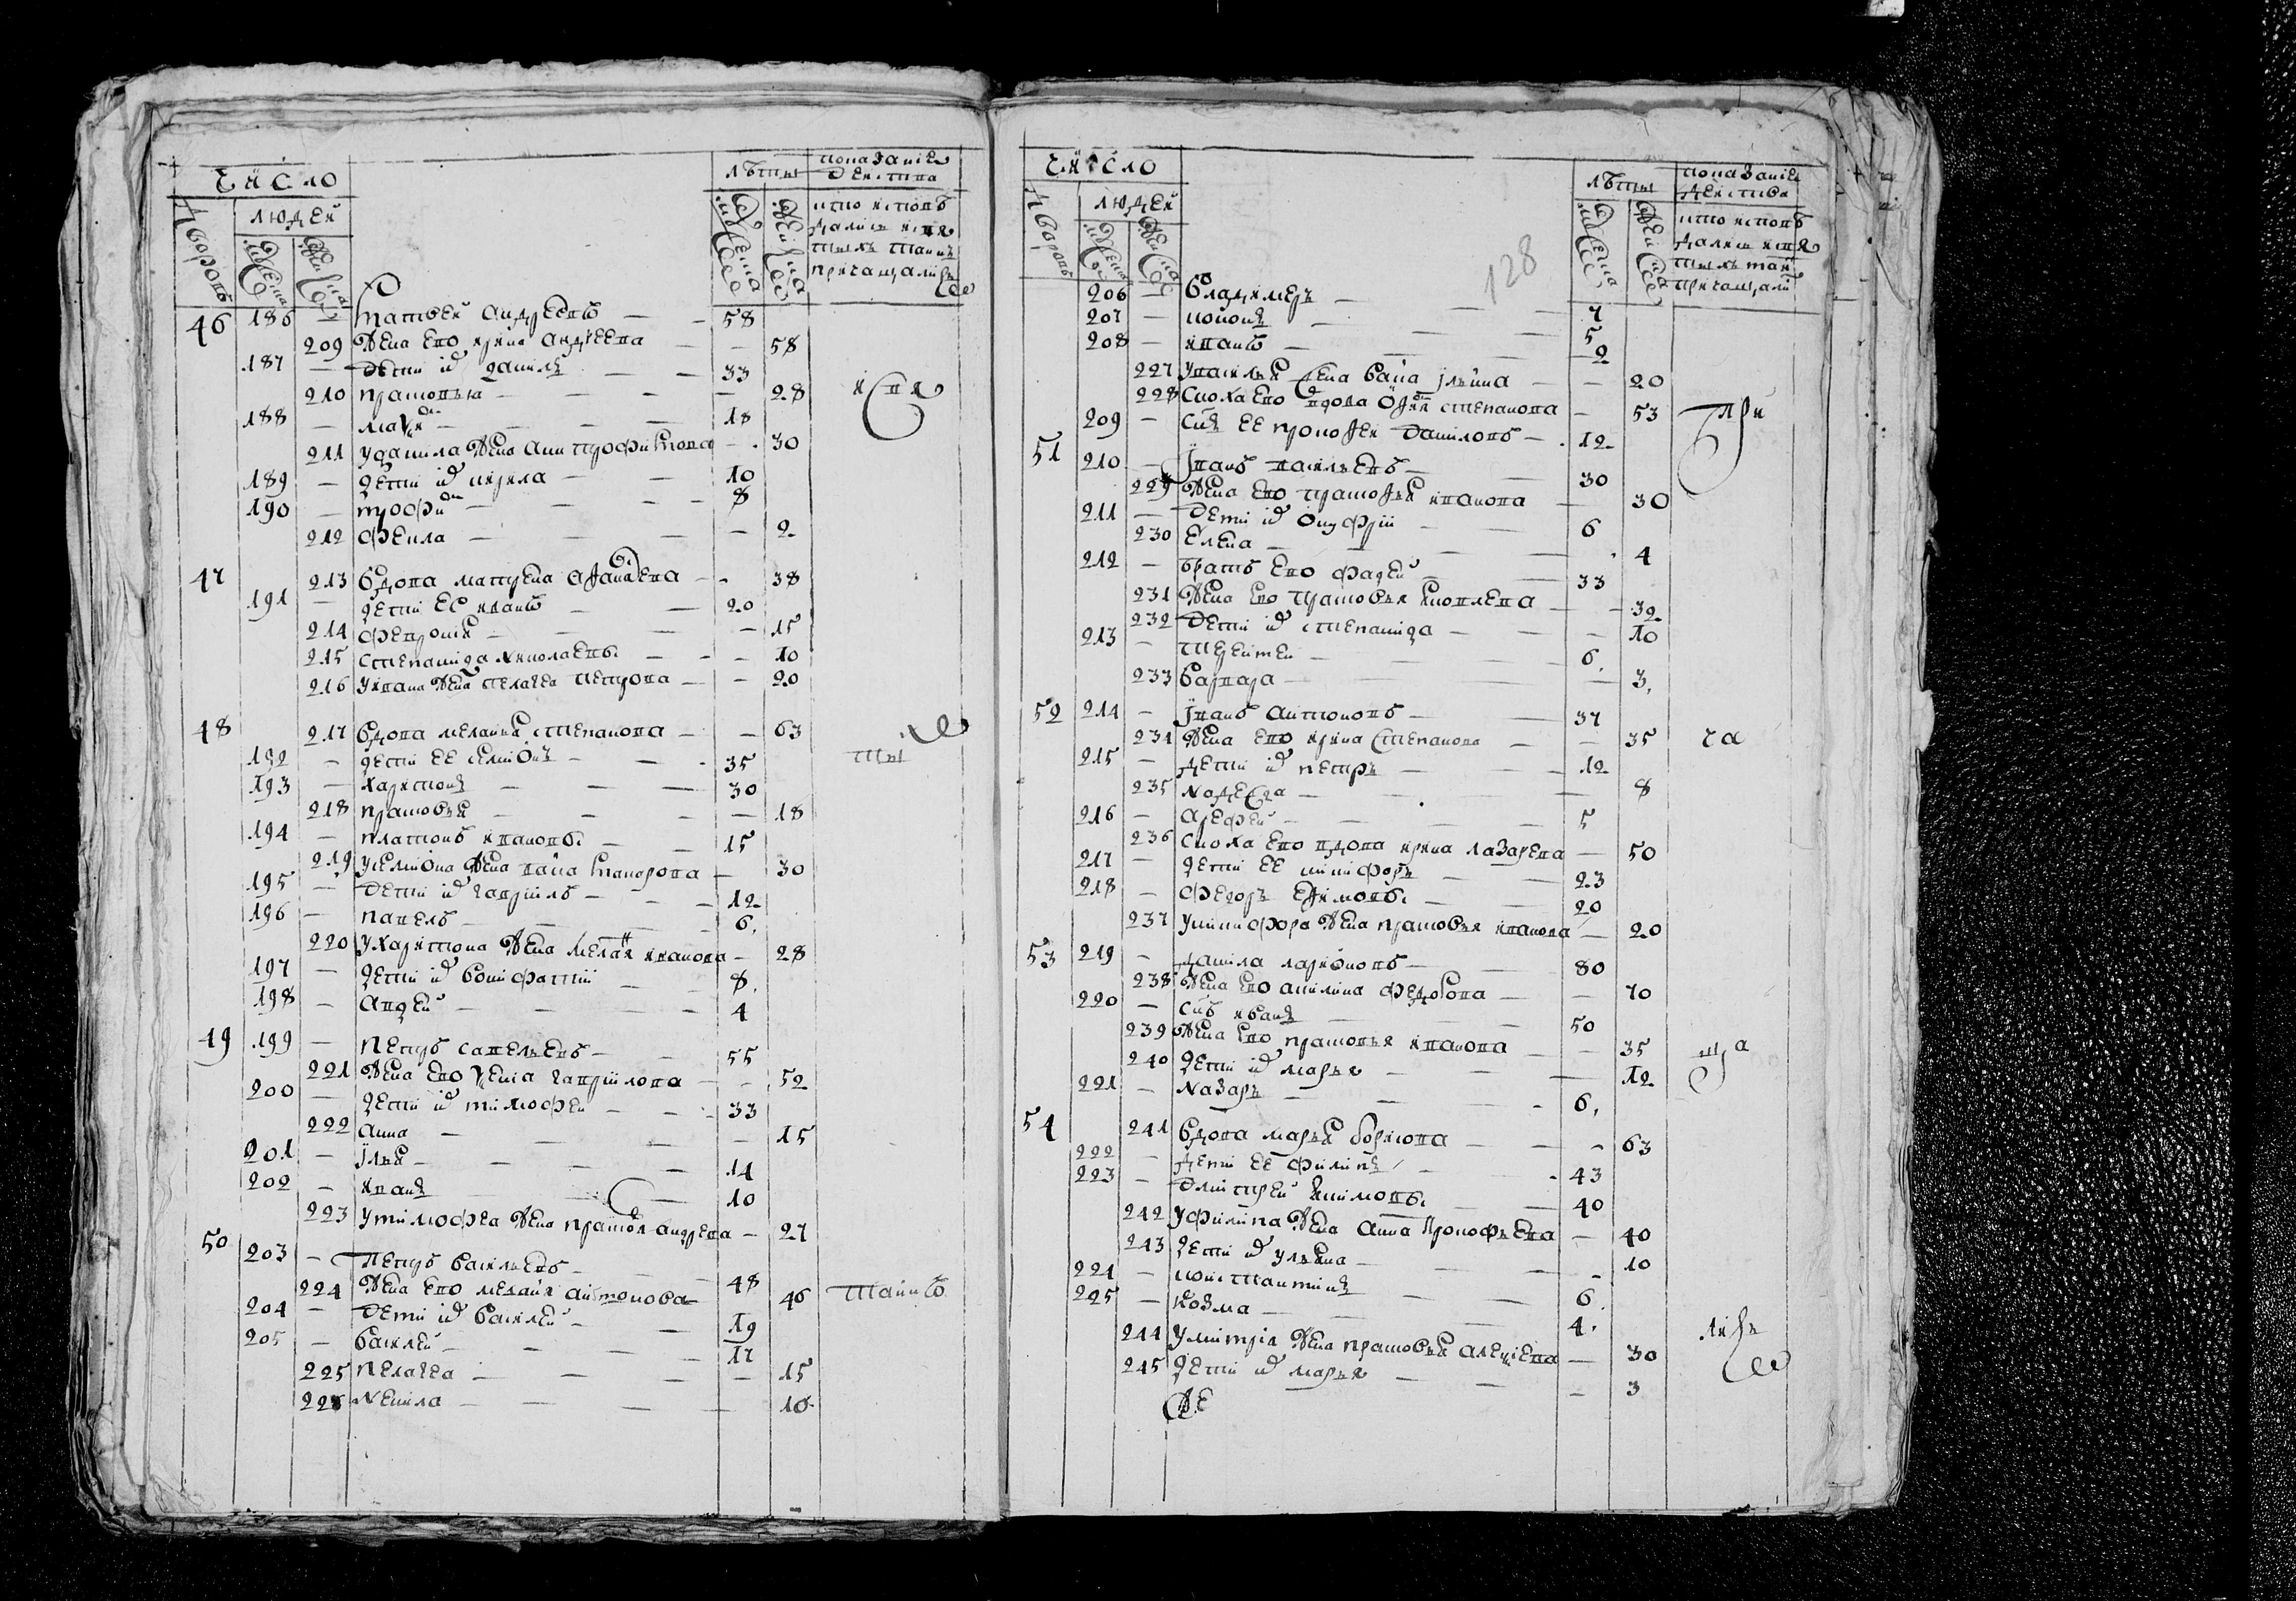 число
дворовъ
людей
мужеска
женска
лѣты
мужеска
женска
показаніе
действа
кто исповѣ
дались и свя
тыхъ таинъ
причащались
46 186 — Матвей андреевъ — 58
209 жена ево ирина андреева — 58
187 — дети их данила — 33
210 прасковья — 28
188 — — 18
211 у данила жена анна трофимова — 30
189 — дети их кирила — 10
190 — трофим — 8
212 фекла — 2
и свя
47 213 вдова матрена афанасева — 38
191 — дети ее иванъ — 20
214 феврония — 15
215 степанида николаевы — 10
216 у ивана жена пелагея петрова — 20
48 217 вдова меланья степанова — 63
192 — дети ее семионъ — 35
193 — харитонъ — 30
218 прасковья — 18
194 — платонъ ивановы — 15
219 у семиона жена — 30
195 — дети их гаврилъ — 12
196 — павелъ — 6
220 у харитона жена мелания иванова — 28
197 — дети их вонифатий — 8
198 — авдей — 4
ты
49 199 — петръ савельевъ — 55
221 жена ево ксения гаврилова — 52
200 — дети их тимофей — 33
222 анна — 15
201 — илья — 14
202 — иванъ — 10
223 у тимофея жена прасковья андреева — 27
50 203 — петръ васильевъ — 48
224 жена ево мелания антонова — 46
204 — дети их василей — 19
205 — василей — 17
225 пелагея — 15
226 ненила — 10
таинъ
число
дворовъ
людей
мужеска
женска
лѣты
мужеска
женска
показаніе
действа
кто исповѣ
дались и свя
тыхъ таин
причащали
128
206 — владимеръ — 7
207 — кононъ — 5
208 — иванъ — 2
227 у василья жена ильина — 20
228 сноха ево вдова степанова — 53
209 — сынъ ее прокофей даниловъ — 12
51 210 — иванъ васильевъ — 30
229 жена ево прасковья иванова — 30
211 — дети их онуфрий — 6
230 елена — 4
212 — братъ ево фадей — 33
231 жена ево прасковья яковлева — 32
232 дети их степанида — 10
213 — терентей — 6
233 варвара — 3
при
52 214 — иванъ антоновъ — 37
234 жена ево ирина степанова — 35
215 — дети их петръ — 12
235 надежда — 8
216 — арефей — 5
236 сноха ево вдова ирина лазарева — 50
217 — дети ее никифоръ — 23
218 — федоръ ефимовы — 20
237 у никифора жена прасковья иванова — 20
ча
53 219 — данила ларионовъ — 80
238 жена ево акилина федорова — 70
220 — сынъ иванъ — 50
239 жена ево прасковья иванова — 35
240 дети их марья — 12
221 — назаръ — 6
ща
54 241 вдова марья борисова — 63
222 — дети ее филипъ — 43
223 — дмитрей екимовы — 40
242 у филипа жена анна прокофьева — 40
243 дети их ульяна — 10
224 — константинъ — 6
225 — козма — 4
244 у митрия жена прасковья алексеева — 30
245 дети их марья — 3
лись